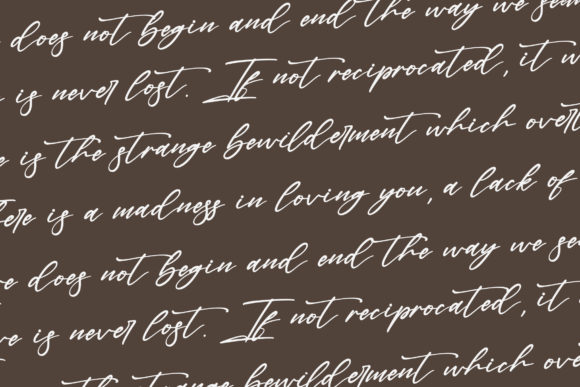 does not begin and end the way we see
is never lost. If not reciprocated, it w
e is the strange bewilderment which overt
ere is a madness in loving you, a lack of
ve does not begin and end the way we see
ve is never lost. If not reciprocated, it
the strange bewilderment which over